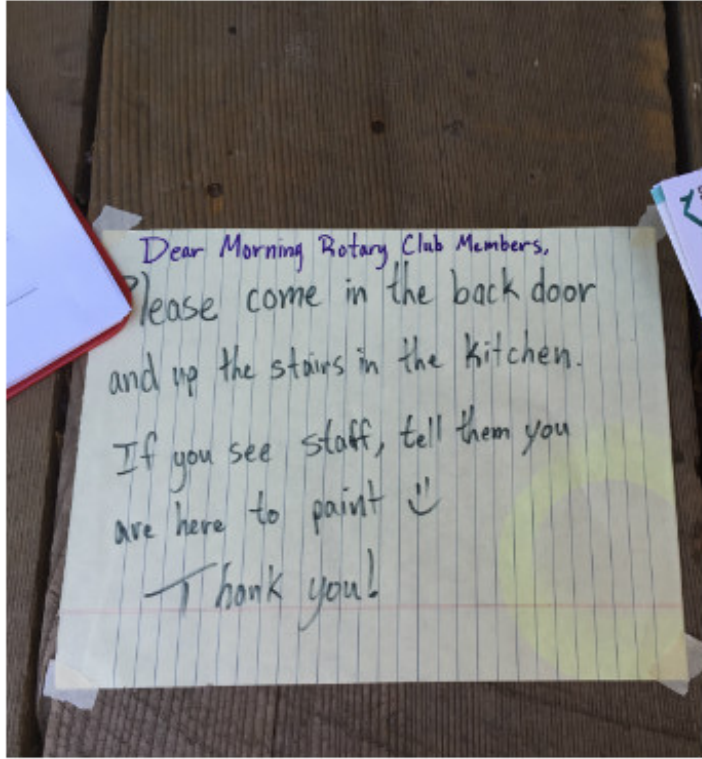 Dear Morning Rotary Club Members,
Please come in the back door
and up the stairs in the kitchen.
If you see staff, tell them you
are here to paint
Thank you!